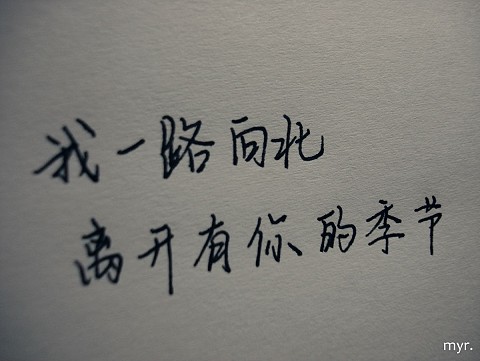 我一路向北
离开有你的季节
myr.